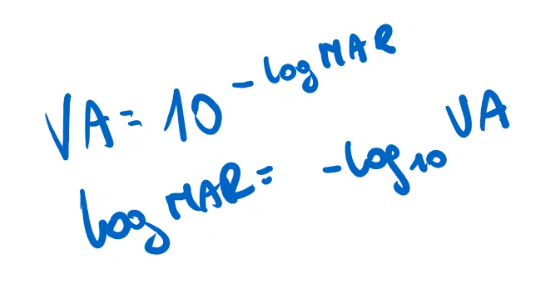 VA = 10^{- log MAR}
log MAR = - log_{10} VA